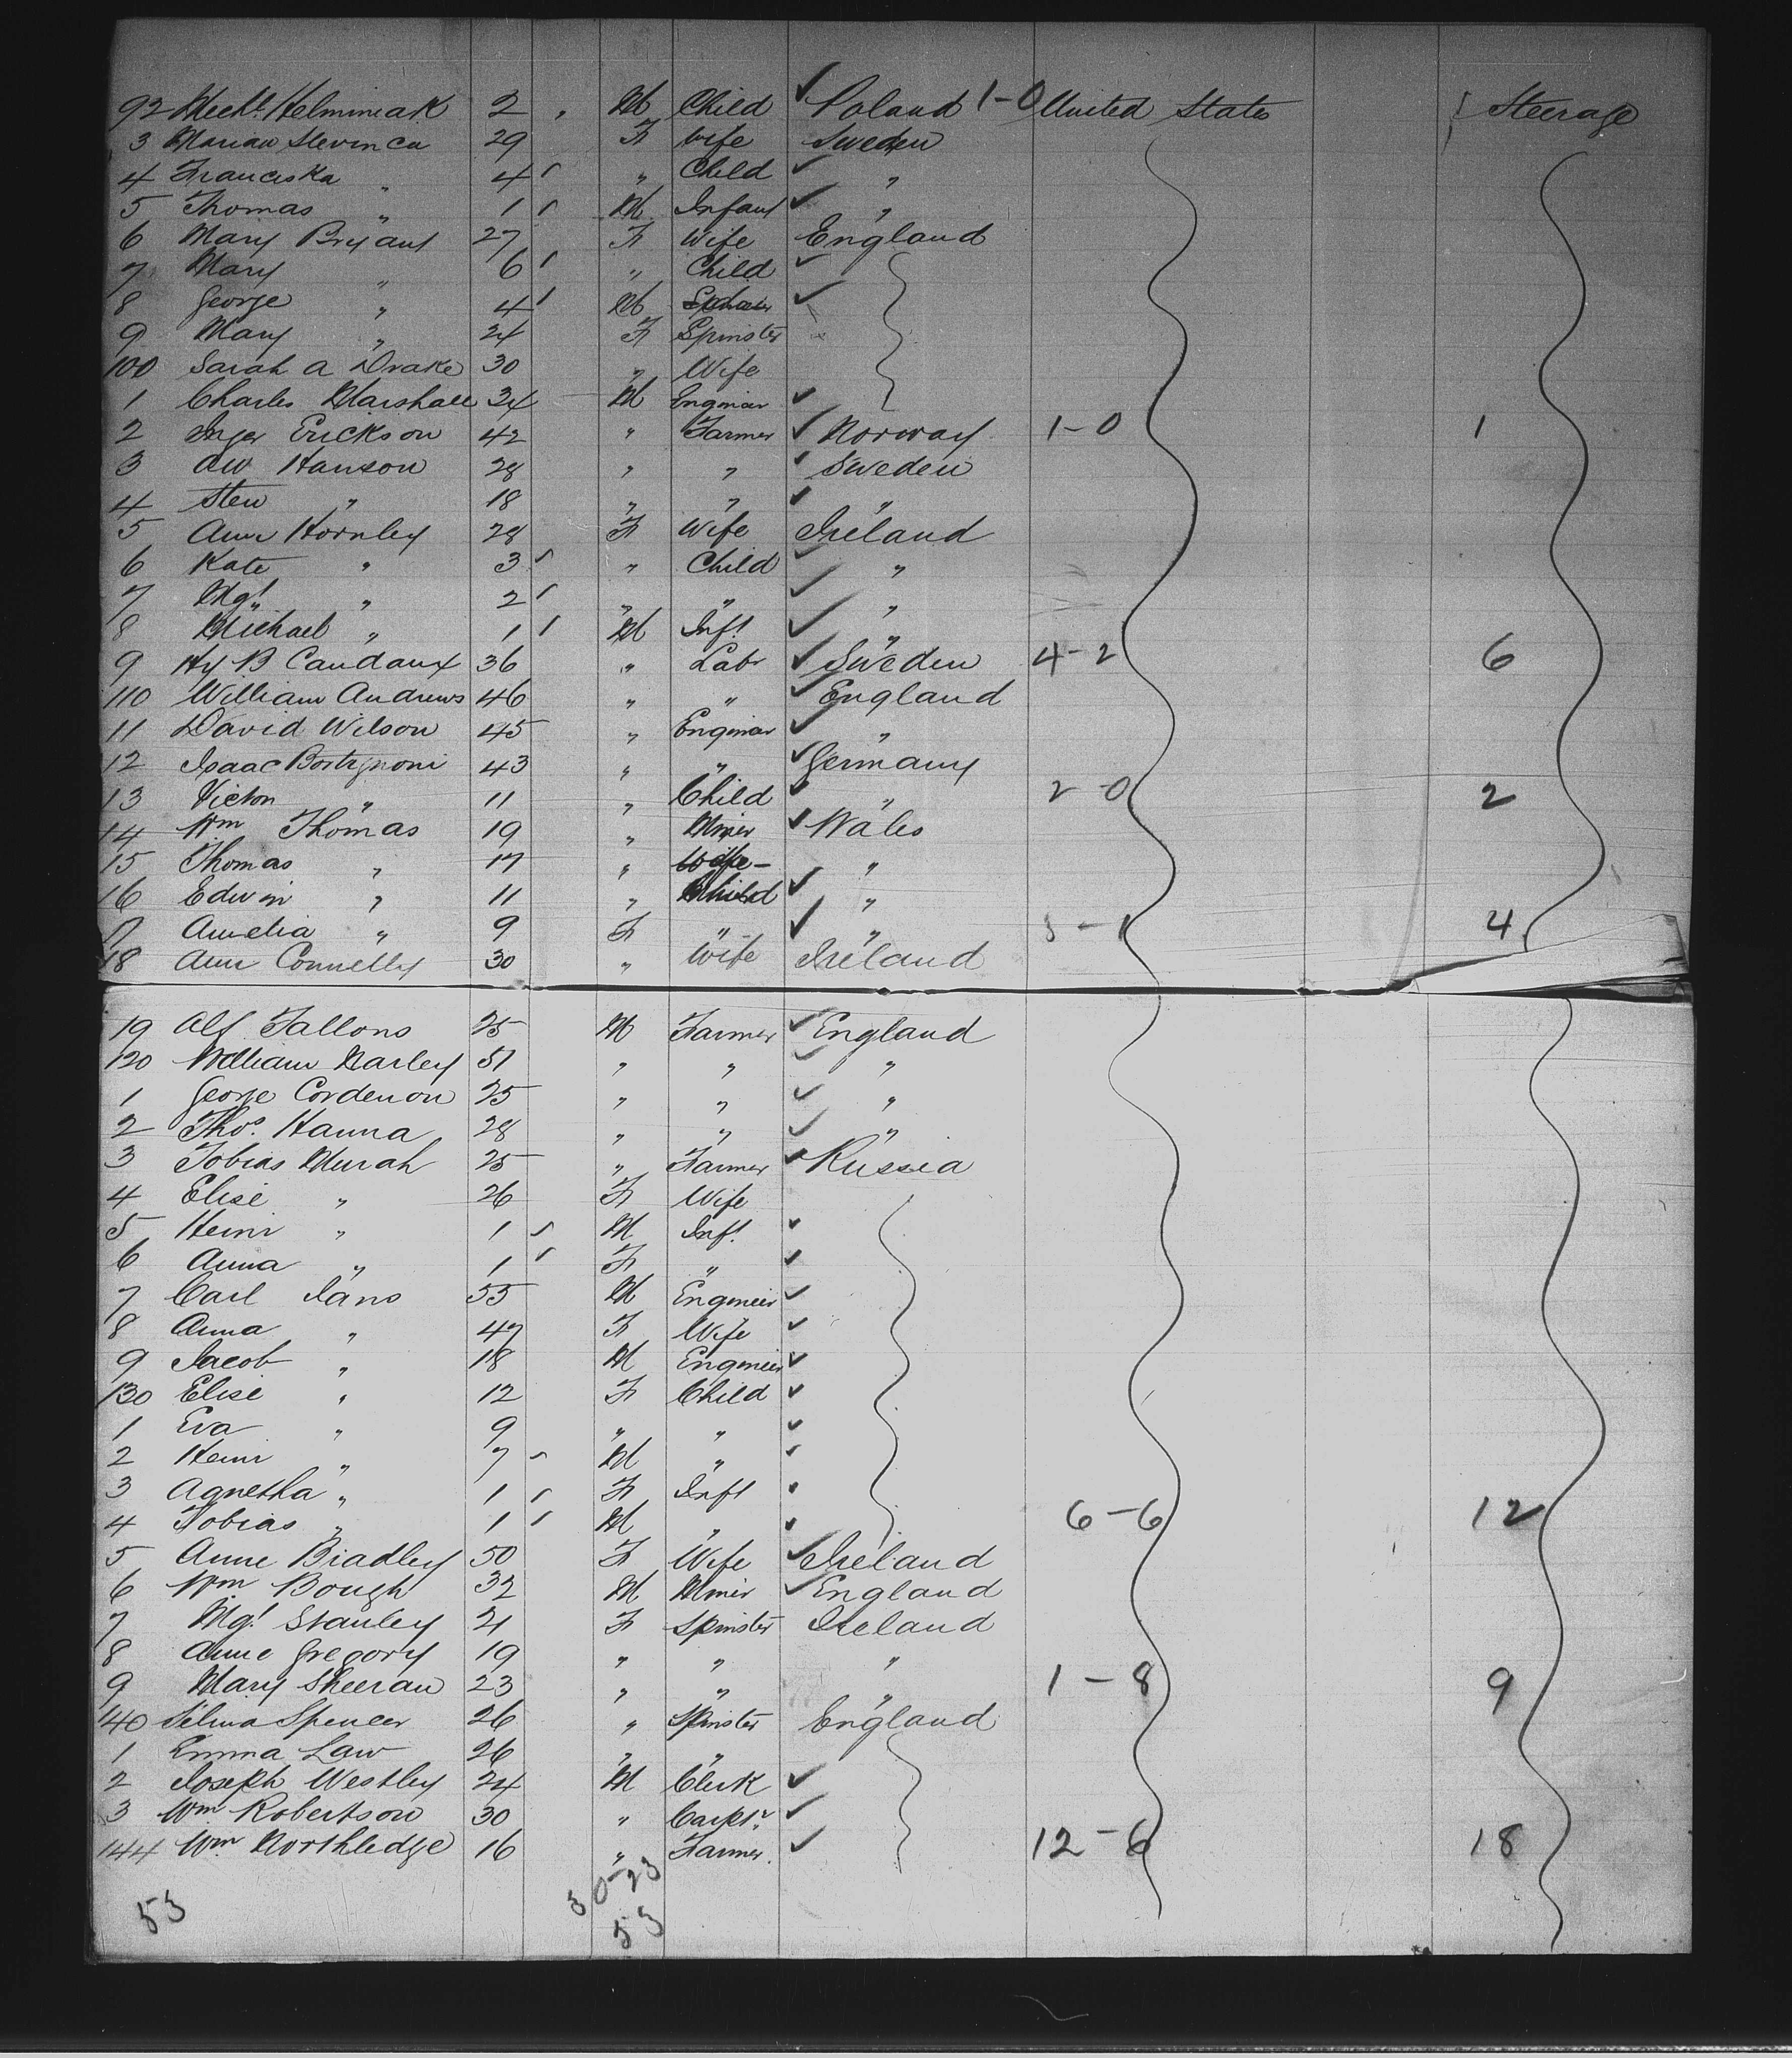 92 Mech. Helminiak 2 M Child Poland 1-0 United States Steerage
3 Marian Slevinca 29 F Wife Sweden
4 Franciska " 4 " Child "
5 Thomas " 1 M Infant "
6 Mary Bryant 27 F Wife England
7 Mary " 6 " Child
8 George " 4 M
9 Mary " 24 F Spinster
100 Sarah A Drake 30 " Wife
1 Charles Marshall 34 M Enginier
2 Inger Erickson 42 " Farmer Norway 1-0 1
3 Aw Hanson 28 " " Sweden
4 Sten " 18 " " "
5 Ann Hornley 28 F Wife Ireland
6 Kate " 3 " Child "
7 Mgt " 2 " " "
8 Michael " 1 M Inft "
9 Hy B Candaux 36 " Labr Sweden 4-2 6
110 William Andrews 46 " " England
11 David Wilson 45 " Enginier "
12 Isaac Bortignoni 43 " " Germany
13 Victon " 11 " Child " 2-0 2
14 Wm Thomas 19 " Miner Wales
15 Thomas " 17 " Wife "
16 Edwin " 11 " Child "
17 Amelia " 9 F " " 3-1 4
18 Ann Connelly 30 " Wife Ireland
19 Alf Fallons 25 M Farmer England
120 William Marley 51 " " "
1 George Cordenon 25 " " "
2 Thos. Hanna 28 " " "
3 Tobias Murah 25 " Farmer Russia
4 Elise " 26 F Wife
5 Heinr " 1 M Inft
6 Anna " 1 F "
7 Carl Jans 55 M Engineir
8 Anna " 47 F Wife
9 Jacob " 18 M Engineir
130 Elise " 12 F Child
1 Eva " 9 " "
2 Heinr " 7 M "
3 Agnetha " 1 F Inft
4 Tobias " 1 M " 6-6 12
5 Anne Bradley 50 F Wife Ireland
6 Wm Bough 32 M Miner England
7 Mgt Stanley 21 F Spinster Ireland
8 Anne Gregory 19 " " "
9 Mary Sheeran 23 " " " 1-8 9
140 Selina Spencer 26 " Spinster England
1 Emma Law 26 " "
2 Joseph Westley 24 M Clerk
3 Wm Robertson 30 " Carptr
144 Wm Northledge 16 " Farmer 12-6 18
53 30-23
53